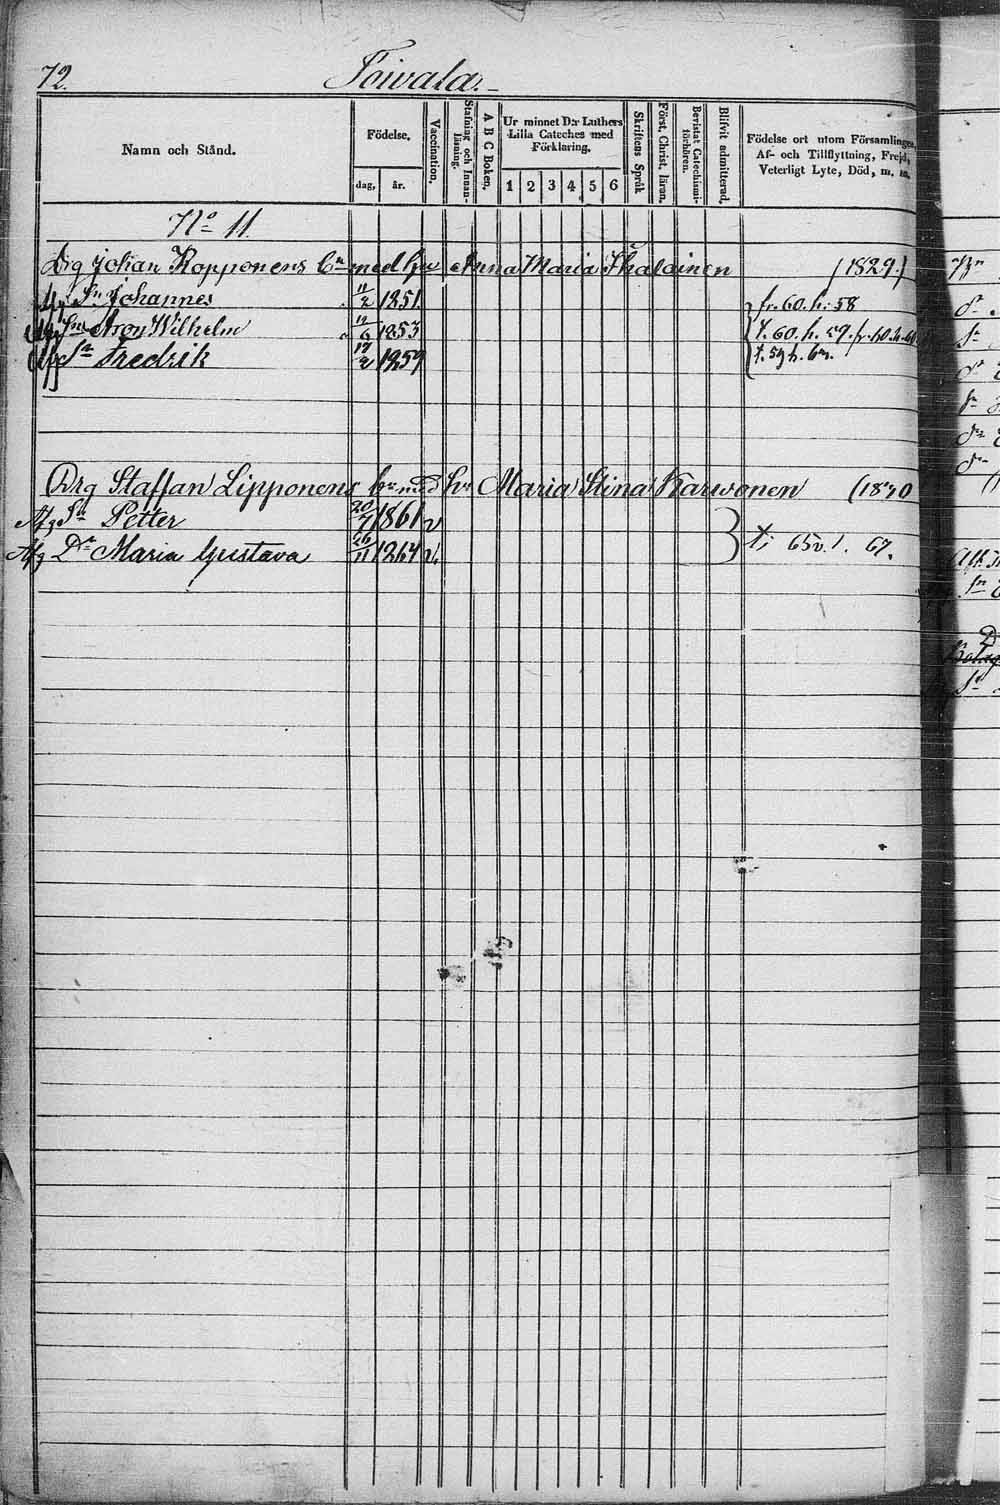 72.
Toivala.
Namn och Stånd.
Födelse.
dag,
år.
Vaccination.
Stafning och Innan-läsning.
A B C Boken.
Ur minnet D:r Luthers
Lilla Cateches med
Förklaring.
1 2 3 4 5 6
Skriftens Språk
Först. Christ. läran.
Bevistat Catechismi-förhören.
Blifvit admitterad.
Födelse ort utom Församlingen,
Af- och Tillflyttning, Frejd,
Veterligt Lyte, Död, m. m.
No 11.
Drg Johan Kopponens bn med hu Anna Maria Ihalainen (1829.)
Sn Johannes 11/2 1851. fr. 60. h. 58
Sn Aron Wilhelm 11/6 1853 t. 60. h. 59.
Sn Fredrik 17/2 1859 t. 59 h.
Drg Staffan Lipponens bn med hu Maria Stina Karwonen (1840
Afg Sn Petter 20/7 1861 v
Afg Dr Maria Gustava 26/11 1864 v. t; 65 v. 1. 67.